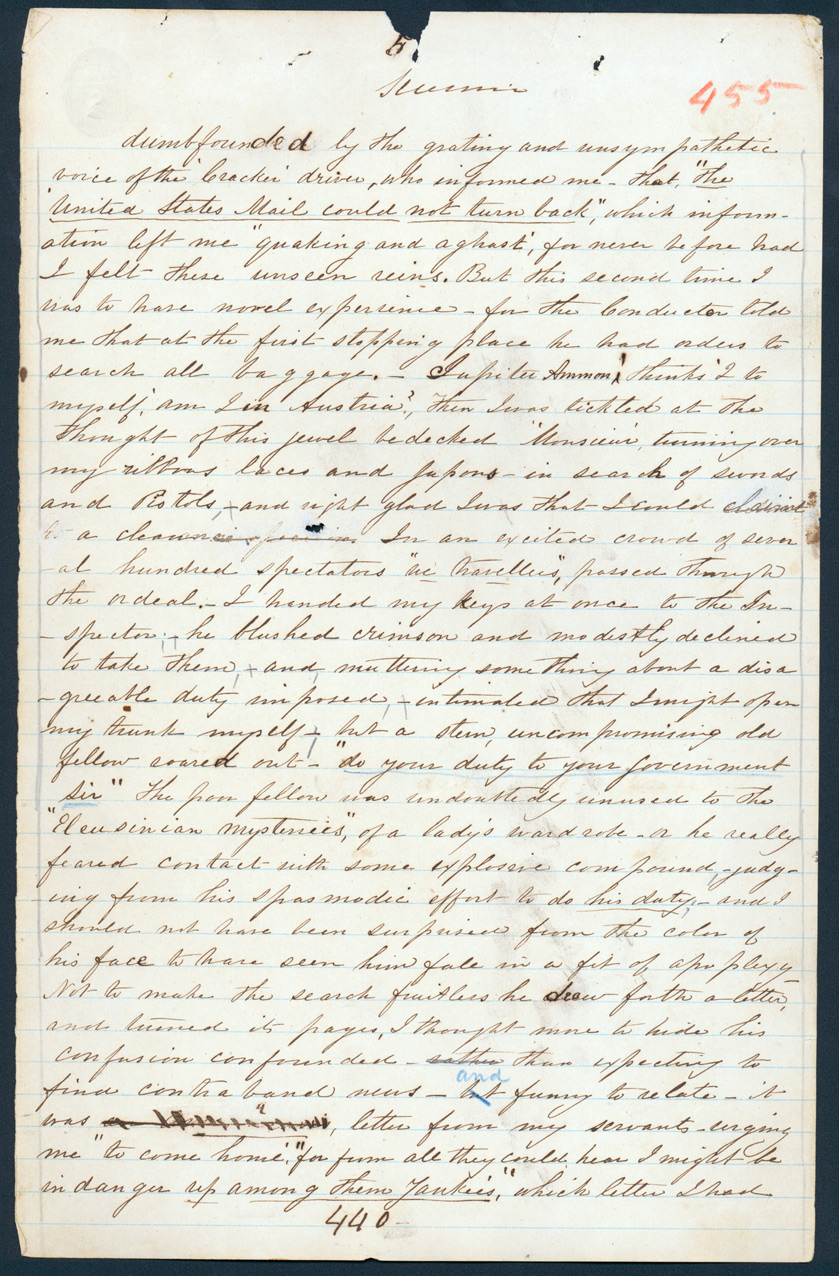 5
455
dumbfounded by the grating and unsympathetic
voice of the 'Cracker' driver, who informed me - that, "the
United States Mail could not turn back", which inform-
ation left me "quaking and aghast", for never before had
I felt these unseen reins. But this second time I
was to have novel experience - for the Conductor told
me that at the first stopping place he had orders to
search all baggage. - Jupiter Ammon! thinks I to
myself, am I in Austria?, Then I was tickled at the
thought of this jewel bedecked 'Monsieur, turning over
my ribbons laces and Jupons - in search of swords
and Pistols, - and right glad I was that I could
a clean In an excited crowd of sever
-al hundred spectators "we travellers", passed through
the ordeal. - I handed my keys at once to the In-
-spector - he blushed crimson and modestly declined
to take them, + and, muttering something about a disa
-greeable duty imposed, - intimated that I might open
my trunk myself - but a stern, uncompromising old
fellow roared out - "do your duty to your government
Sir" The poor fellow was undoubtedly unused to the
"Eleusinian Mysteries", of a lady's wardrobe - or he really
feared contact with some explosive compound, - judg-
ing from his spasmodic effort to do his duty, - and I
should not have been surprised from the color of
his face to have seen him fall in a fit of apoplexy
Not to make the search fruitless he drew forth a letter,
and turned its pages, I thought more to hide his
confusion confounded - rather than expecting to
and
find contraband news - but funny to relate - it
was a letter from my servants urging
me "to come home", "for from all they could hear I might be
in danger up among them Yankees", which letter I had
440